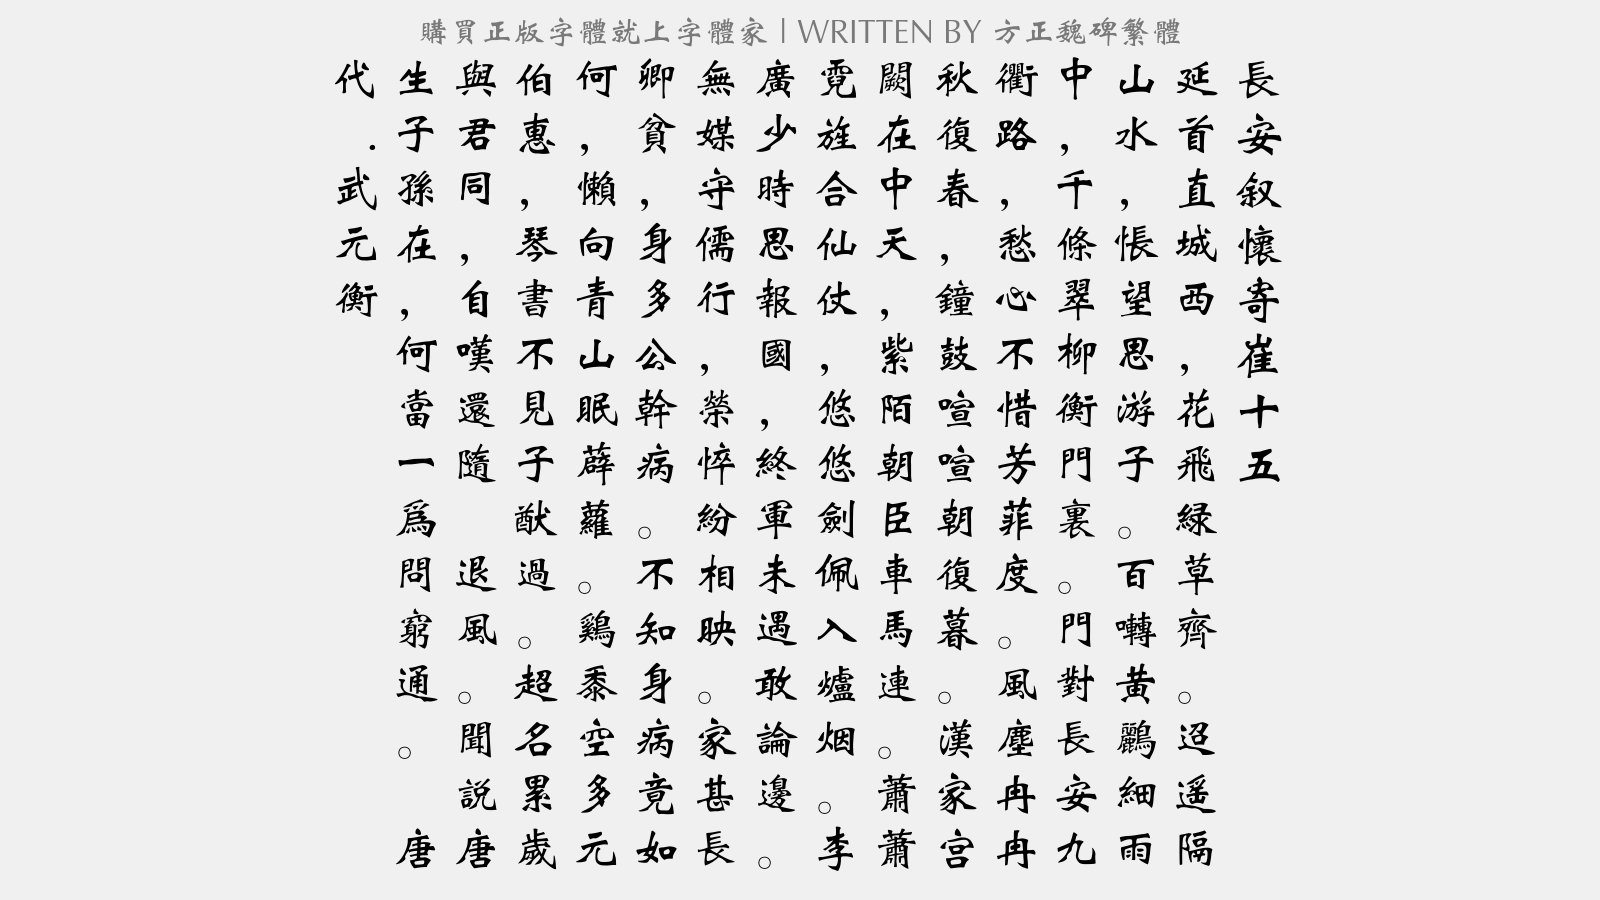 購買正版字體就上字體家 | WRITTEN BY 方正魏碑繁體
長安叙懷寄崔十五
延首直城西，花飛緑草齊。迢遥隔
山水，悵望思游子。百囀黄鸝細雨
中，千條翠柳衡門裏。門對長安九
衢路，愁心不惜芳菲度。風塵冉冉
秋復春，鐘鼓喧喧朝復暮。漢家宫
闕在中天，紫陌朝臣車馬連。蕭蕭
霓旌合仙仗，悠悠劍佩入爐烟。李
廣少時思報國，終軍未遇敢論邊。
無媒守儒行，榮悴紛相映。家甚長
卿貧，身多公幹病。不知身病竟如
何，懶向青山眠薜蘿。鷄黍空多元
伯惠，琴書不見子猷過。超名累歲
與君同，自嘆還隨 退風。聞説唐
生子孫在，何當一爲問窮通。 唐
代.武元衡